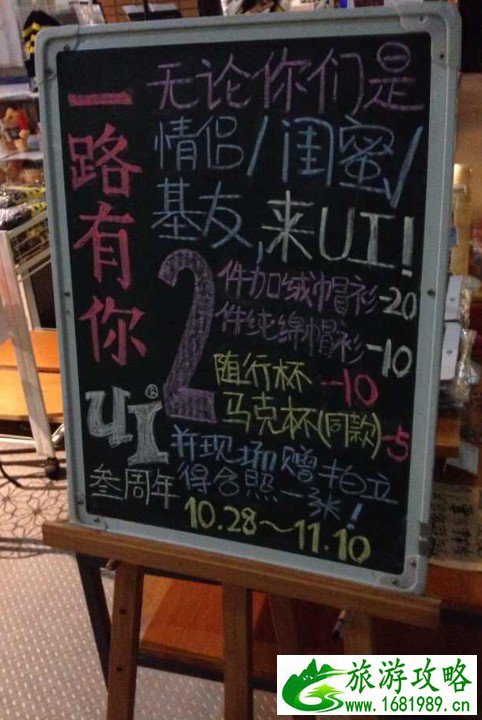 一路有你
无论你们是
情侣/闺蜜/
基友,来UI!
2
件加绒帽衫-20
件纯绵帽衫-10
随行杯--10
马克杯(同款)-5
UI®
叁周年
并现场赠拍立
得合照一张!
10.28~11.10
旅游攻略
www.1681989.cn